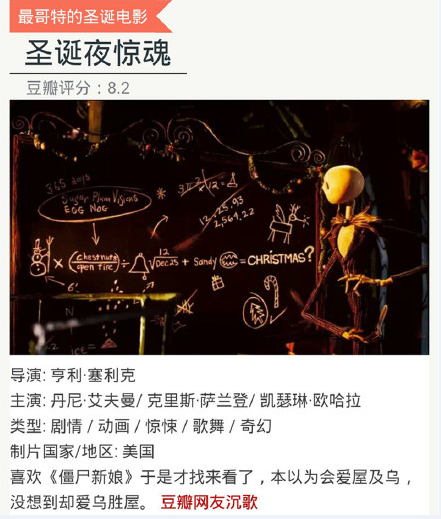 最哥特的圣诞电影
圣诞夜惊魂
豆瓣评分：8.2
365 days
Sugar Plum Visions
EGG NOG
12.25.93
2,564.22
chestnuts
open fire
12
Dec.25
+ Sandy
= CHRISTMAS?
ice
导演: 亨利·塞利克
主演: 丹尼·艾夫曼/ 克里斯·萨兰登/ 凯瑟琳·欧哈拉
类型: 剧情 / 动画 / 惊悚 / 歌舞 / 奇幻
制片国家/地区: 美国
喜欢《僵尸新娘》于是才找来看了，本以为会爱屋及乌，
没想到却爱乌胜屋。 豆瓣网友沉歌